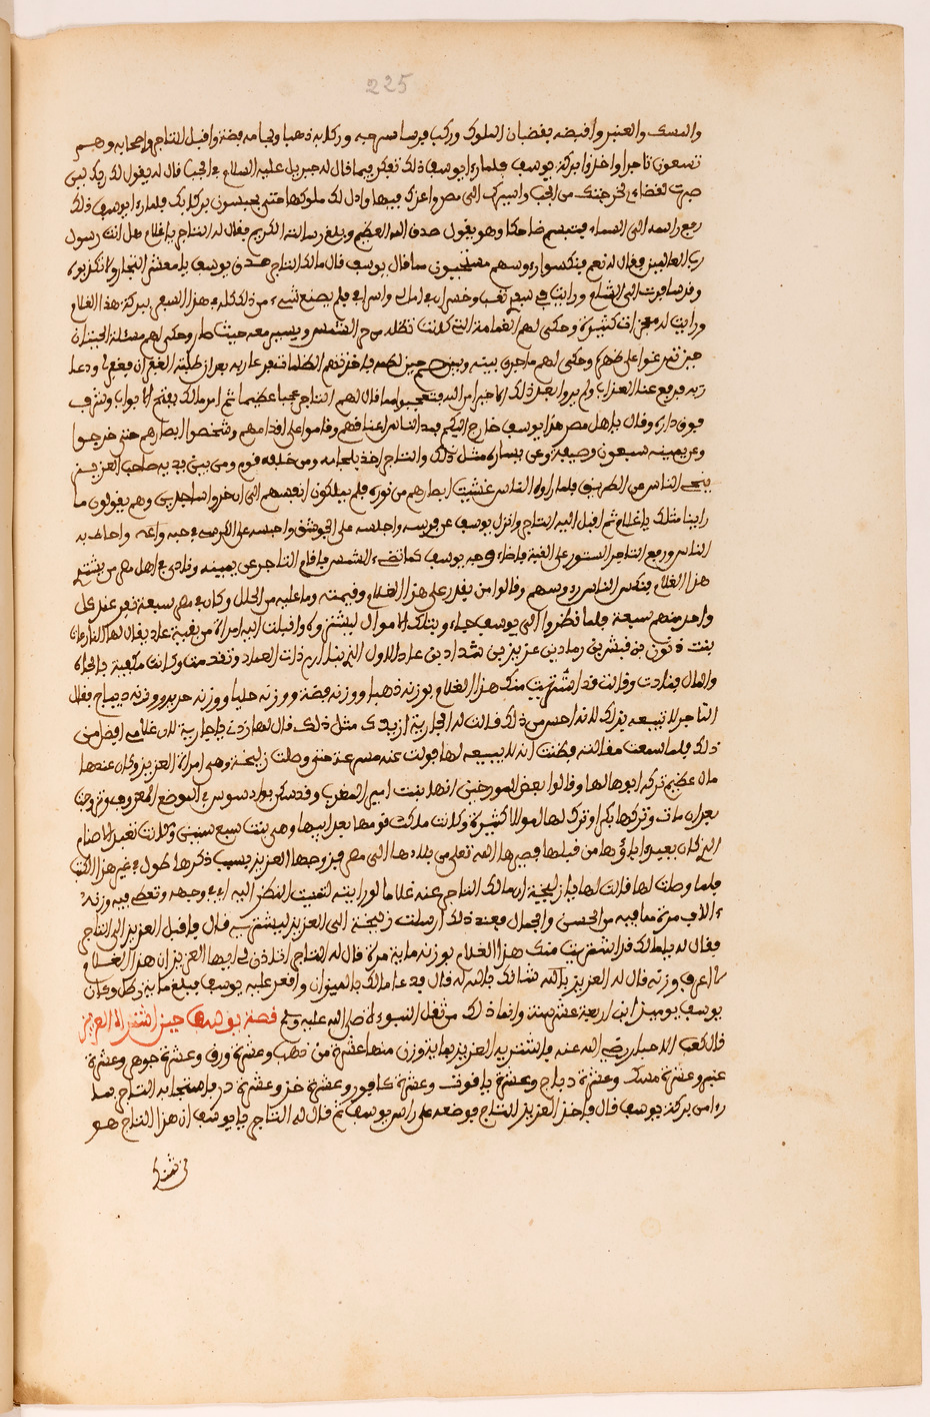 225
والمسك والعنبر واقبضه بقضبان الملوك وركب فرسا سرجه وركابه ذهبا ولجامه فضة واقبل التاجر واصحابه وهم
تسعون تاجرا واخذوا بركة يوسف فلما راى يوسف ذلك تفكر فيما قال له جبريل عليه السلام في الجب قال له يقول لك ربك لئن
صبرت لقضائي لاخرجنك من الجب واسيرك الى مصر واعزك فيها واذل لك ملوكها حتى يحبسون بركابك فلما راى يوسف ذلك
رفع راسه الى السماء فتبسم ضاحكا وهو يقول صدق الله العظيم وبلغ رسالته الكريم فقال له التاجر يا غلام هل انت رسول
رب العالمين فقال له نعم فنكسوا رءوسهم متعجبون مما قال يوسف قال مالك التاجر صدق يوسف يا معشر التجار ولا تكذبوه
وقد سافرت الى الشام ورايت في سفري تعب وخسران في مالك واسرافي فلم يصنع شيء من ذلك كله في هذا السفر ببركة هذا الغلام
ورايت له معجزات كثيرة وحكى لهم الغمامة التي كانت تظله من حر الشمس ويسير معه حيث صار وحكى لهم مسئلة الحيتان
حين تمرغوا على ظهره وحكى لهم ما جرى بينه وبين حين لطمه فاخذتهم الظلمة فدعا ربه بعد ان طلبته الغفران فغفر لي ودعا
ربه فرفع عنا العذاب ولم يروا بعد ذلك الا خيرا من الله فتعجبوا مما قال لهم التاجر عجبا عظيما ثم امر مالك بفتح الابواب وشرف
فوق داره وقال يا اهل مصر هذا يوسف خارج اليكم فمد الناس اعناقهم وقاموا على اقدامهم وشخصوا ابصارهم حتى خرجوا
وعن يمينه سبعون وصيفة وعن يساره مثل ذلك والتاجر اخذ بلجامه ومن خلفه قوم ومن بين يديه صاحب العزيز
ينحي الناس عن الطريق فلما راوه الناس غشيت ابصارهم من نوره فلم يملكون انفسهم الى ان خروا ساجدين وهم يقولون ما
راينا مثلك يا غلام ثم اقبل اليه التاجر وانزل يوسف عن فرسه واجلسه على الجوشق واجلسه على الكرسي في جبه واعه واحاط به
الناس ورفع التاجر الستور على القبة فاضاء وجه يوسف كما تضيء الشمس فاقام التاجر عن يمينه ونادى في اهل مصر من يشتري
هذا الغلام فنكس الناس رءوسهم وقالوا من يقدر على هذا الغلام وقيمته وما عليه من الحلل وكان في مصر سبعة نفر عند كل
واحد منهم سبعة فلما نظروا الى يوسف جاءوه بتلك الاموال ليشتروه واقبلت اليه امراة من بقية عاد يقال لها الفارعة
بنت نون بن قيشر بن رماد بن عزيز بن شداد بن عاد الاول الذي بنا ارم ذات العماد وتقدمت وكانت مكفية بالجاه
والمال فنادت وقالت قد اشتريت منك هذا الغلام بوزنه ذهبا ووزنه فضة ووزنه حليا ووزنه حرير ووزنه ديباج فقال
التاجر لا نبيعه بذلك لانه احسن من ذلك قالت له الجارية ازيدك مثل ذلك قال لها زدني يا جارية لان غلامي افضل من
ذلك فلما سمعت مقالته فطنت انه لا يبيعه لها فولت عنه مسرعة حتى وصلت زليخة وهي امراة العزيز وكان عندها
مال عظيم تركه ابوها لها وقالوا بعض المورخين انها بنت امير المغرب وقد سكن بواد سوس في الموضع المعروف وتزوجت
بعد ان مات وتركها بكرا وترك لها اموالا كثيرة وكانت ملكت قومها بعد ابيها وهي بنت سبع سنين وكانت تعبد الاصنام
الذي كان يعبدوا اباؤها من قبلها قصرها الله تعلى من بلادها الى مصر فتزوجها العزيز بسبب ذكرها طول في غير هذا الكتاب
فلما وصلت لها قالت لها يا زليخة ان مالك التاجر عنده غلاما لو رايته لتمنيت النظر اليه اي في وجهه وتعطي فيه وزنه
الاف مرة مما فيه من الحسن والجمال فعند ذلك ارسلت زليخة الى العزيز ليشتريه قال واقبل العزيز الى التاجر
فقال له يا مالك قد اشتريت منك هذا الغلام بوزنه ماية مرة قال له التاجر ائذن لي ايها العزيز ان هذا الغلام
ما اعرف وزنه قال له العزيز بالله شانك بالله له قال فدعا مالك بالميزان واقعد عليه يوسف فبلغ ماية رطل وكان
يوسف يوميذ ابن اربعة عشر سنة وانما ذلك من ثقل النبوءة صلى الله عليه وسلم قصة يوسف حين اشتراه العزيز
قال كعب الاحبار رضي الله عنه فاشتريه العزيز بماية وزن منها عشرة من ذهب وعشرة ورق وعشرة جوهر وعشرة
عنبر وعشرة مسك وعشرة ديباج وعشرة ياقوت وعشرة كافور وعشرة خز وعشرة در فاستجابه التاجر لما
راى من بركة يوسف قال فاخذ العزيز التاج فوضعه على راس يوسف ثم قال له التاجر يا يوسف ان هذا التاج هو